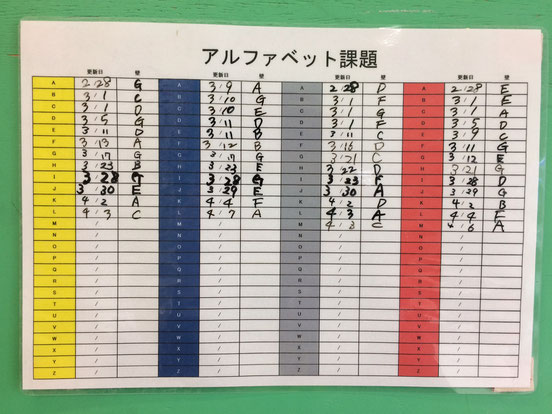 アルファベット課題
更新日 壁 更新日 壁 更新日 壁 更新日 壁
A 2/28 G A 3/9 A A 2/28 D A 2/28 E
B 3/1 C B 3/10 G B 3/1 F B 3/1 E
C 3/1 D C 3/10 E C 3/1 G C 3/1 A
D 3/5 G D 3/11 D D 3/1 F D 3/5 D
E 3/11 D E 3/11 B E 3/11 C E 3/9 C
F 3/13 A F 3/12 B F 3/16 D F 3/11 G
G 3/17 G G 3/17 G G 3/21 C G 3/12 E
H 3/23 B H 3/23 E H 3/22 D H 3/21 G
I 3/28 I 3/28 G I 3/23 F I 3/28 D
J 3/30 E J 3/29 E J 3/30 A J 3/29 G
K 4/2 A K 4/4 F K 4/2 D K 4/2 B
L 4/3 C L 4/7 A L 4/3 A L 4/4 F
M / M / M 4/3 C M 4/6 A
N / N / N / N /
O / O / O / O /
P / P / P / P /
Q / Q / Q / Q /
R / R / R / R /
S / S / S / S /
T / T / T / T /
U / U / U / U /
V / V / V / V /
W / W / W / W /
X / X / X / X /
Y / Y / Y / Y /
Z / Z / Z / Z /